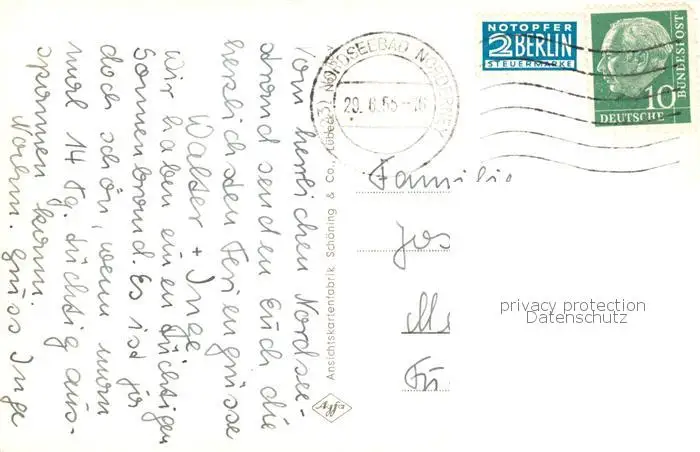 Vom herrlichen Nordsee-
strand senden Euch die
herzlichsten Feriengrüsse
Walter + Inge
Wir haben einen tüchtigen
Sonnenbrand. Es ist ja
doch schön, wenn man
mal 14 Tg. tüchtig aus-
spannen kann.
Nochm. Gruss Inge
Ansichtskartenfabrik Schöning & Co., Lübeck
Agfa
NORDSEEBAD NORDERNEY
NOTOPFER
2 BERLIN
STEUERMARKE
10
DEUTSCHE
BUNDESPOST
Familie
Jos
privacy protection
Datenschutz